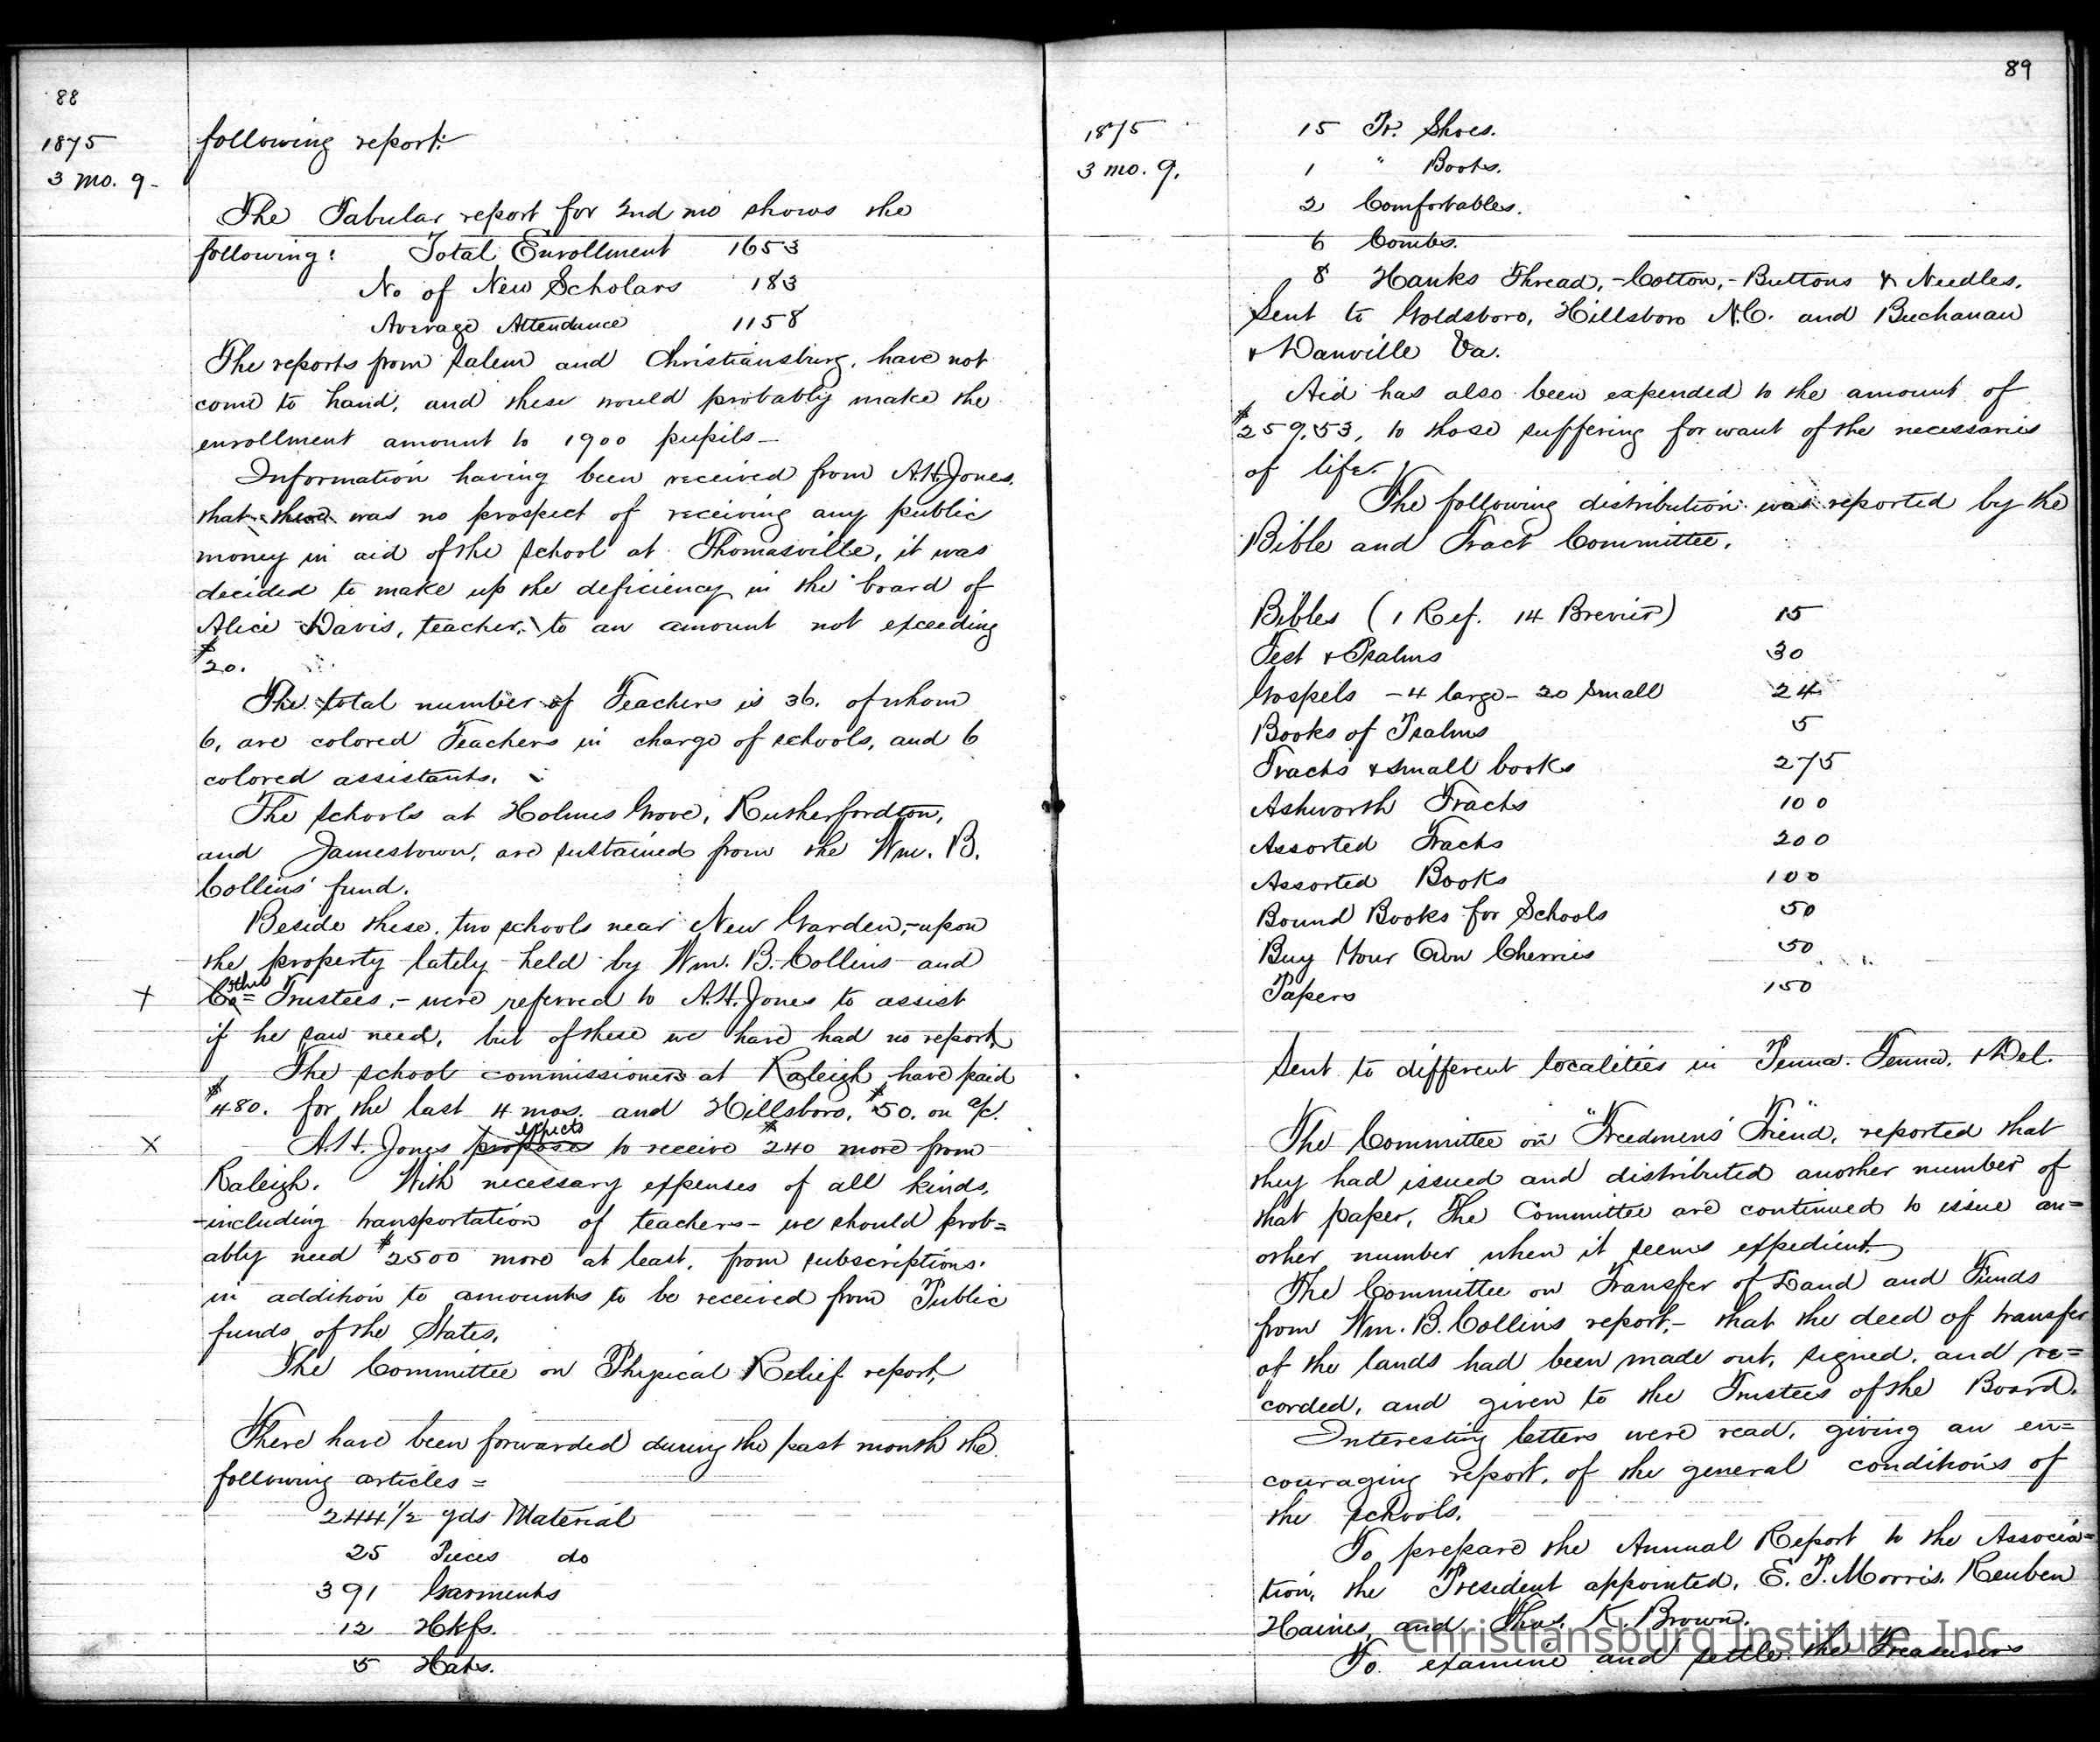 88
1875
3 mo. 9.
following report:
The Tabular report for 2nd mo shows the
following: Total Enrollment 1653
No of New Scholars 183
Average Attendance 1158
The reports from Salem and Christiansburg, have not
come to hand, and these would probably make the
enrollment amount to 1900 pupils—
Information having been received from A.H. Jones.
that there was no prospect of receiving any public
money in aid of the school at Thomasville, it was
decided to make up the deficiency in the board of
Alice Davis, teacher, to an amount not exceeding
$20.
The total number of Teachers is 36. of whom
6, are colored Teachers in charge of schools, and 6
colored assistants.
The schools at Holmes Grove, Rutherfordton,
and Jamestown, are sustained from the Wm. B.
Collins' fund.
Beside these, two schools near New Garden,-upon
the property lately held by Wm. B. Collins and
x Co= other Trustees,- were referred to A.H. Jones to assist
if he saw need, but of these we have had no report.
The school commissioners at Raleigh have paid
$480. for the last 4 mos. and Hillsboro, $50. on a/c.
x A.H. Jones proposes expects to receive $240 more from
Raleigh. With necessary expenses of all kinds,
-including transportation of teachers- we should prob=
ably need $2500 more at least, from subscriptions.
in addition to amounts to be received from Public
funds of the States.
The Committee on Physical Relief report,
There have been forwarded during the past month the
following articles =
244 1/2 yds Material
25 Pieces do
391 Garments
12 Hkfs.
5 Hats.
89
1875
3 mo. 9.
15 Pr. Shoes.
1 " Boots.
2 Comfortables.
6 Combs.
8 Hanks Thread,-Cotton,-Buttons & Needles.
Sent to Goldsboro, Hillsboro N.C. and Buchanan
& Danville Va.
Aid has also been expended to the amount of
$259.53, to those suffering for want of the necessaries
of life.
The following distribution was reported by the
Bible and Tract Committee.
Bibles (1 Ref. 14 Brevier) 15
Test & Psalms 30
Gospels - 4 large - 20 small 24
Books of Psalms 5
Tracts & small books 275
Ashworth Tracts 100
Assorted Tracts 200
Assorted Books 100
Bound Books for Schools 50
Buy Your Own Cherries 50
Papers 150
Sent to different localities in Penna. Tenna. & Del.
The Committee on "Freedmens' Friend", reported that
they had issued and distributed another number of
that paper, The Committee are continued to issue an=
other number when it seems expedient.
The Committee on Transfer of Land and Funds
from Wm. B. Collins report,- that the deed of transfer
of the lands had been made out, signed, and re=
corded, and given to the Trustees of the Board.
Interesting letters were read, giving an en=
couraging report, of the general conditions of
the schools.
To prepare the Annual Report to the Associa=
tion, the President appointed, E. P. Morris, Reuben
Haines, and Thos. K. Brown.
To examine and settle the Treasurers
Christiansburg Institute, Inc